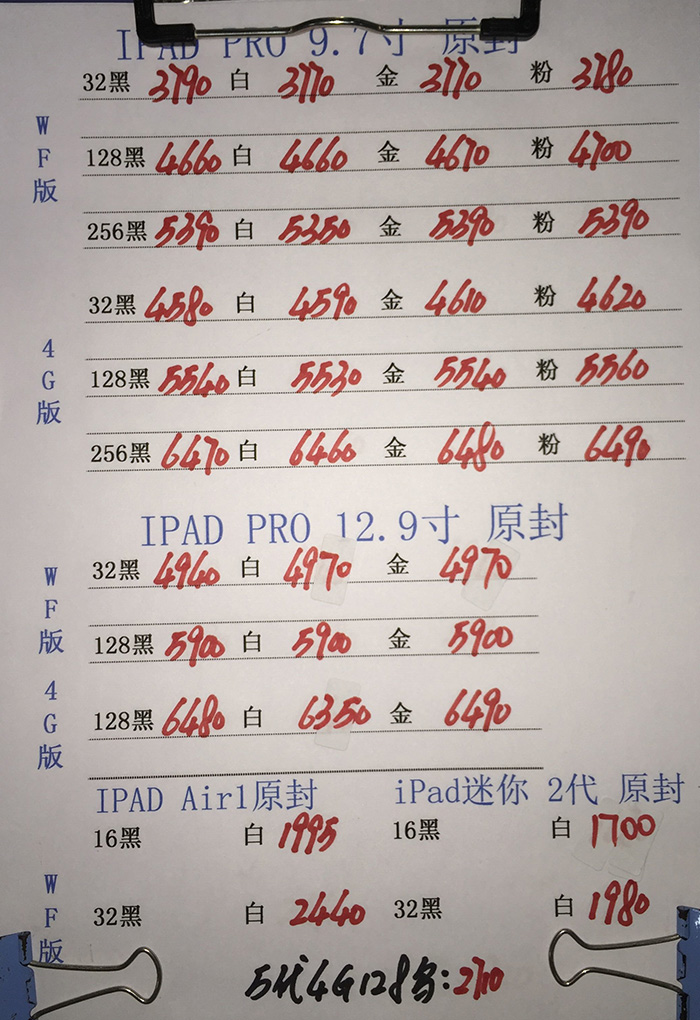 IPAD PRO 9.7寸 原封
WF版
32黑 3790 白 3770 金 3770 粉 3780
128黑 4660 白 4660 金 4670 粉 4700
256黑 5390 白 5350 金 5390 粉 5390
4G版
32黑 4580 白 4590 金 4610 粉 4620
128黑 5540 白 5530 金 5540 粉 5560
256黑 6470 白 6460 金 6480 粉 6490
IPAD PRO 12.9寸 原封
WF版
32黑 4940 白 4970 金 4970
128黑 5900 白 5900 金 5900
4G版
128黑 6480 白 6350 金 6490
IPAD Air1原封 iPad迷你 2代 原封
WF版
16黑 白 1995 16黑 白 1700
32黑 白 2440 32黑 白 1980
5代4G128各:2710